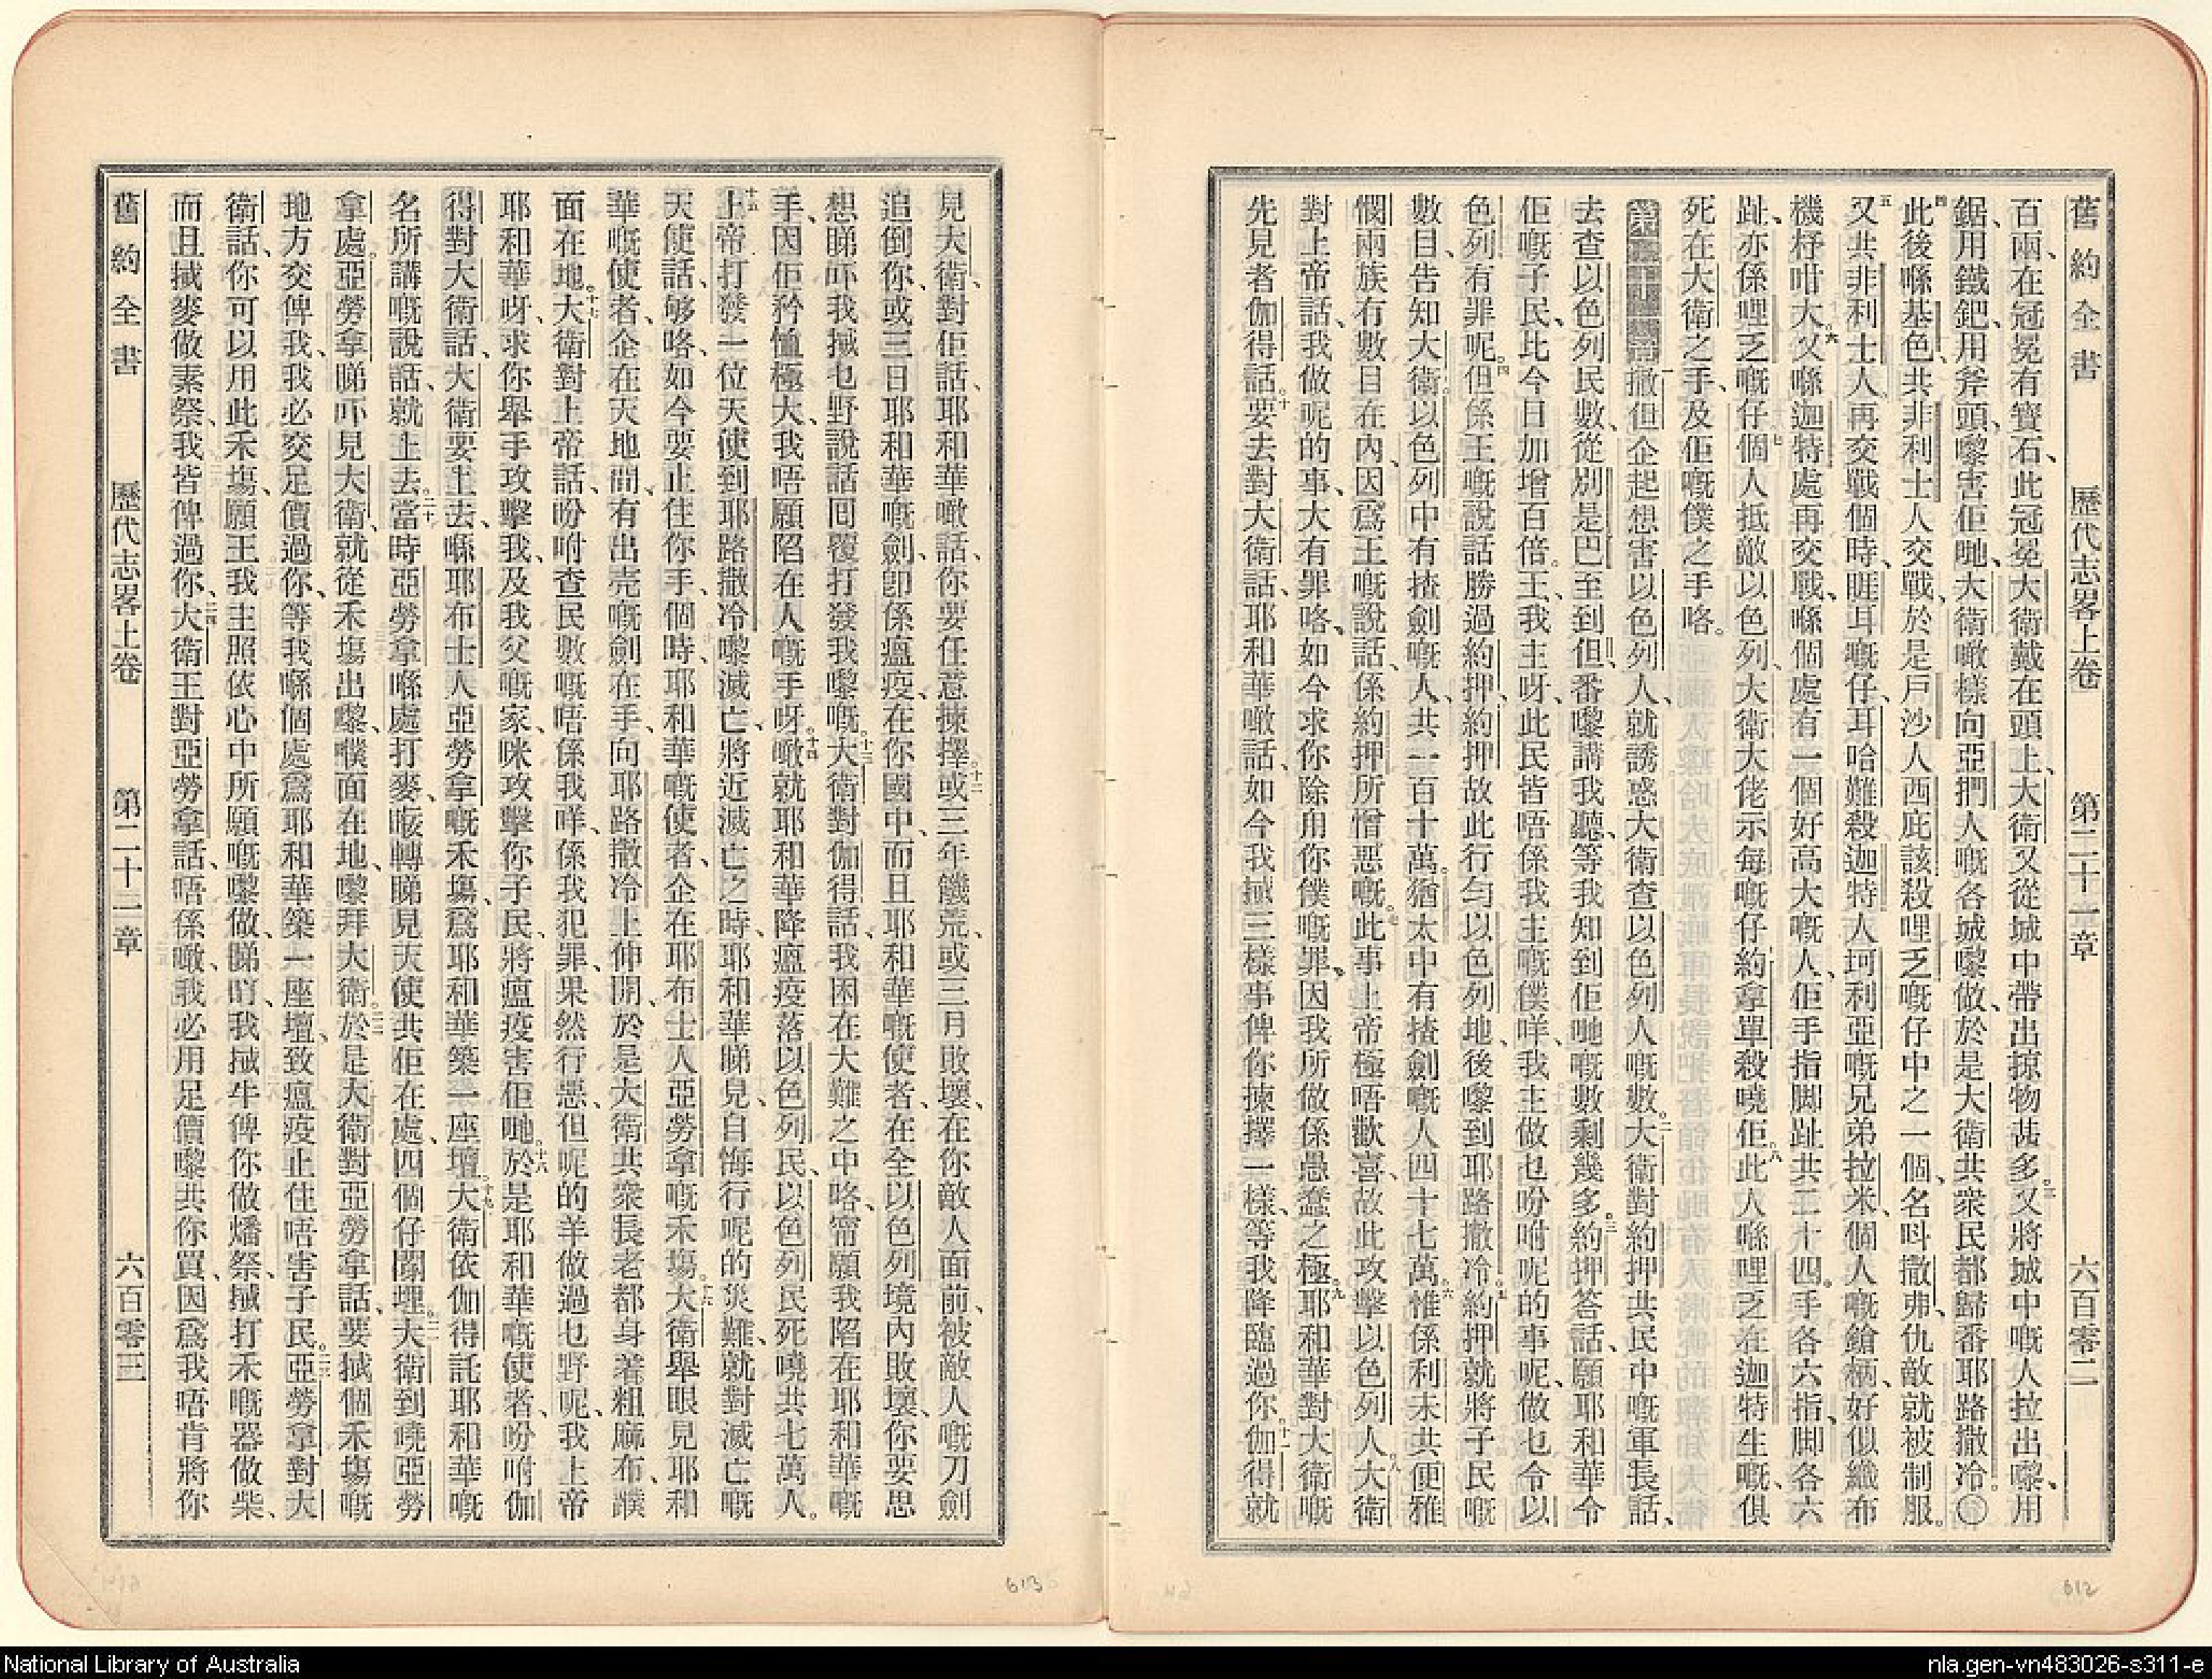 舊約全書 歷代志畧上卷 第二十一章 六百零二
百兩、在冠冕有寶石、此冠冕大衛戴在頭上、大衛又從城中帶出掠物甚多。三又將城中嘅人拉出嚟、用
鋸、用鐵鈀、用斧頭、嚟害佢哋、大衛噉樣向亞捫人嘅各城嚟做、於是大衛共衆民都歸番耶路撒冷。〇
四此後喺基色、共非利士人交戰、於是戶沙人西庇該殺哩乏嘅仔中之一個、名呌撒弗、仇敵就被制服。
五又共非利士人再交戰個時、睚耳嘅仔、耳哈難殺迦特人坷利亞嘅兄弟拉米、個人嘅鎗柄、好似織布
機杼咁大。六又喺迦特處再交戰、喺個處有一個好高大嘅人、佢手指脚趾共二十四。手各六指、脚各六
趾、亦係哩乏嘅仔七個人抵敵以色列、大衛大佬示每嘅仔約拿單殺曉佢。八此人喺哩乏在迦特生嘅、俱
死在大衛之手、及佢嘅僕之手咯。
一撒但企起想害以色列人、就誘惑大衛查以色列人嘅數。二大衛對約押共民中嘅軍長話、
去查以色列民數、從別是巴至到但、番嚟講我聽、等我知到佢哋嘅數剩幾多。三約押答話、願耶和華令
佢嘅子民、比今日加增百倍。王、我主呀、此民皆唔係我主嘅僕咩、我主做乜吩咐呢的事呢、做乜令以
色列有罪呢。四但係王嘅說話勝過約押、約押故此行勻以色列地、後嚟到耶路撒冷。五約押就將子民嘅
數目、告知大衛。以色列中有揸劍嘅人、共一百十萬。猶太中有揸劍嘅人四十七萬。六惟係利未共便雅
憫兩族有數目在內、因爲王嘅說話、係約押所憎惡嘅。七此事上帝極唔歡喜、故此攻擊以色列人。八大衛
對上帝話、我做呢的事、大有罪咯、如今求你除甪你僕嘅罪、因我所做係愚蠢之極。九耶和華對大衛嘅
先見者伽得話。十要去對大衛話、耶和華噉話、如今我㨢三樣事俾你揀擇一樣、等我降臨過你。十一伽得就
舊約全書 歷代志畧上卷 第二十一章 六百零三
見大衛、對佢話、耶和華噉話、你要任意揀擇。十二或三年饑荒、或三月敗壞、在你敵人面前、被敵人嘅刀劍
追倒你、或三日耶和華嘅劍、卽係瘟疫、在你國中、而且耶和華嘅使者、在全以色列境內敗壞、你要思
想睇吓我㨢乜野說話囘覆打發我嚟嘅。十三大衛對伽得話、我困在大難之中咯、甯願我陷在耶和華嘅
手、因佢矜恤極大、我唔願陷在人嘅手呀。十四噉就耶和華降瘟疫落以色列民、以色列民死曉共七萬人。
十五上帝打發一位天使到耶路撒冷嚟滅亡、將近滅亡之時、耶和華睇見、自悔行呢的災難、就對滅亡嘅
天使話、够咯、如今要止住你手、個時、耶和華嘅使者、企在耶布士人亞勞拿嘅禾塲。十六大衛舉眼見耶和
華嘅使者、企在天地間、有出壳嘅劍在手、向耶路撒冷上伸開、於是大衛共衆長老都身着粗麻布、濮
面在地。十七大衛對上帝話、吩咐查民數嘅唔係我咩、係我犯罪、果然行惡、但呢的羊做過乜野呢、我上帝
耶和華呀、求你舉手攻擊我、及我父嘅家、咪攻擊你子民、將瘟疫害佢哋。十八於是耶和華嘅使者、吩咐伽
得對大衛話、大衛要上去、喺耶布士人亞勞拿嘅禾塲、爲耶和華築一座壇。十九大衛依伽得託耶和華嘅
名所講嘅說話、就上去。二十當時亞勞拿喺處打麥、㖡轉睇見天使、共佢在處、四個仔閵埋。二一大衛到嘵亞勞
拿處。亞勞拿睇吓見大衛、就從禾塲出嚟、㒒面在地、嚟拜大衛。二二於是大衛對亞勞拿話、要㨢個禾塲嘅
地方交俾我、我必交足價過你、等我喺個處爲耶和華築一座壇、致瘟疫止住唔害子民。二三亞勞拿對大
衛話、你可以用此禾塲、願王我主照依心中所願嘅嚟做、睇吖、我㨢牛俾你做燔祭、㨢打禾嘅器做柴、
而且㨢麥做素祭、我皆俾過你、二四大衛王對亞勞拿話、唔係噉、我必用足價嚟共你買、因爲我唔肯將你
National Library of Australia
nla.gen-vn483026-s311-e
613
612